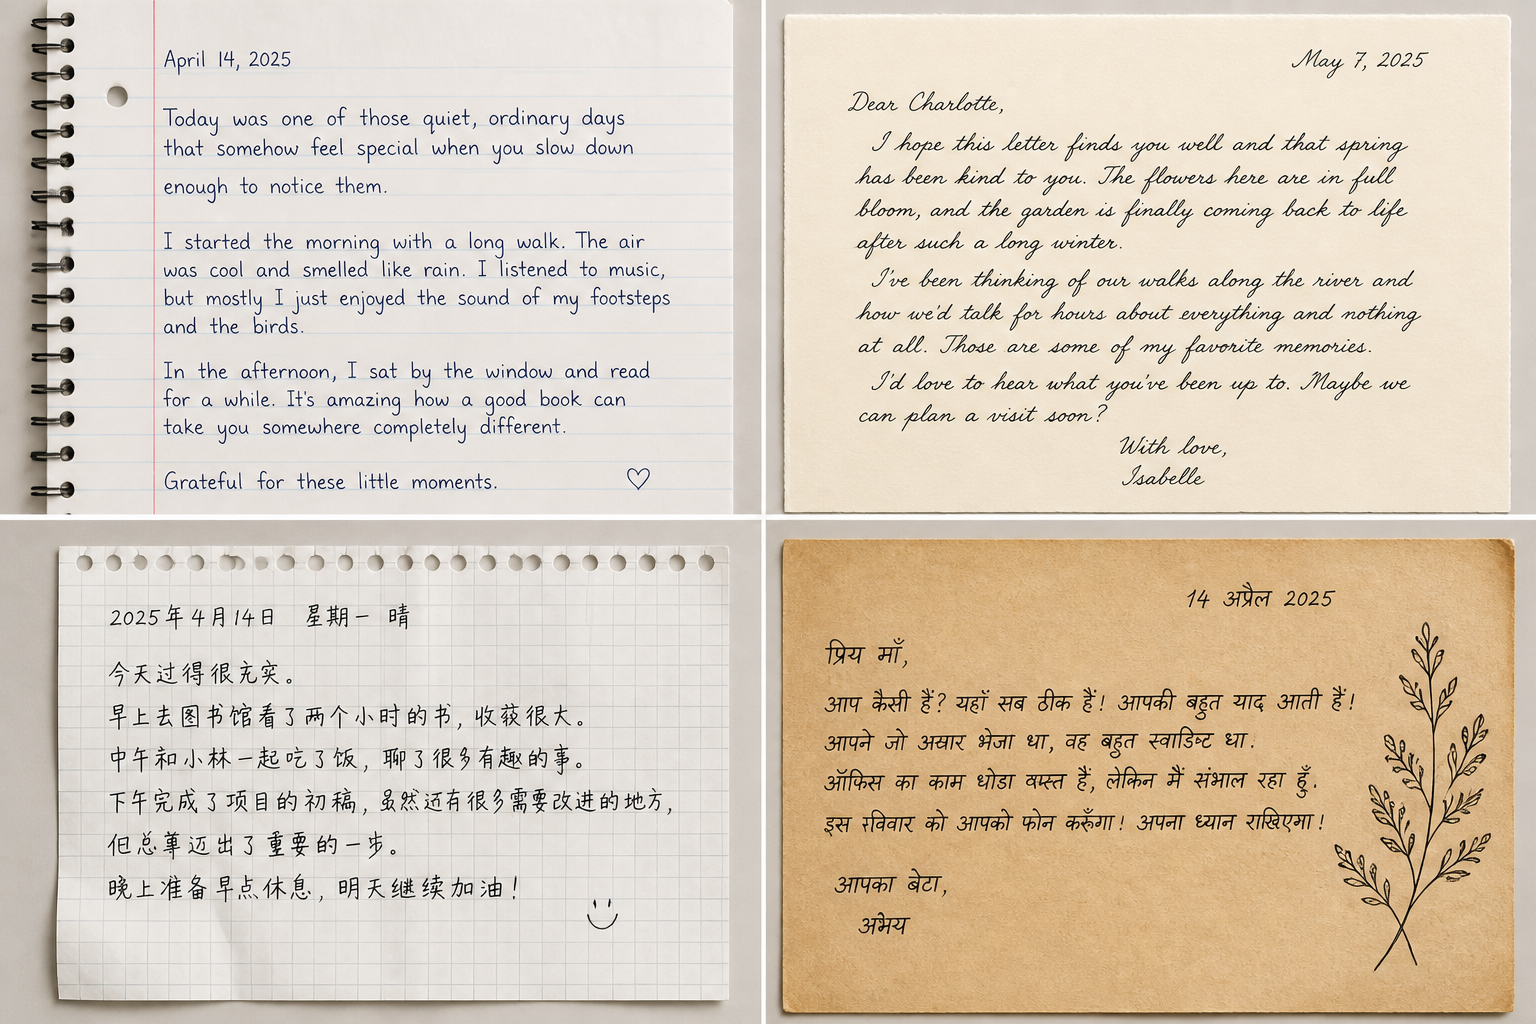 April 14, 2025
Today was one of those quiet, ordinary days
that somehow feel special when you slow down
enough to notice them.
I started the morning with a long walk. The air
was cool and smelled like rain. I listened to music,
but mostly I just enjoyed the sound of my footsteps
and the birds.
In the afternoon, I sat by the window and read
for a while. It's amazing how a good book can
take you somewhere completely different.
Grateful for these little moments.
May 7, 2025
Dear Charlotte,
I hope this letter finds you well and that spring
has been kind to you. The flowers here are in full
bloom, and the garden is finally coming back to life
after such a long winter.
I've been thinking of our walks along the river and
how we'd talk for hours about everything and nothing
at all. Those are some of my favorite memories.
I'd love to hear what you've been up to. Maybe we
can plan a visit soon?
With love,
Isabelle
2025年4月14日 星期一 晴
今天过得很充实。
早上去图书馆看了两个小时的书,收获很大。
中午和小林一起吃了饭,聊了很多有趣的事。
下午完成了项目的初稿,虽然还有很多需要改进的地方,
但总算迈出了重要的一步。
晚上准备早点休息,明天继续加油!
14 अप्रैल 2025
प्रिय माँ,
आप कैसी हैं? यहाँ सब ठीक हैं! आपकी बहुत याद आती हैं!
आपने जो भेजा था, वह बहुत था.
ऑफिस का काम थोडा हैं, लेकिन मैं संभाल रहा हूँ.
इस रविवार को आपको फोन करूँगा! अपना ध्यान
आपका बेटा,
अभेय